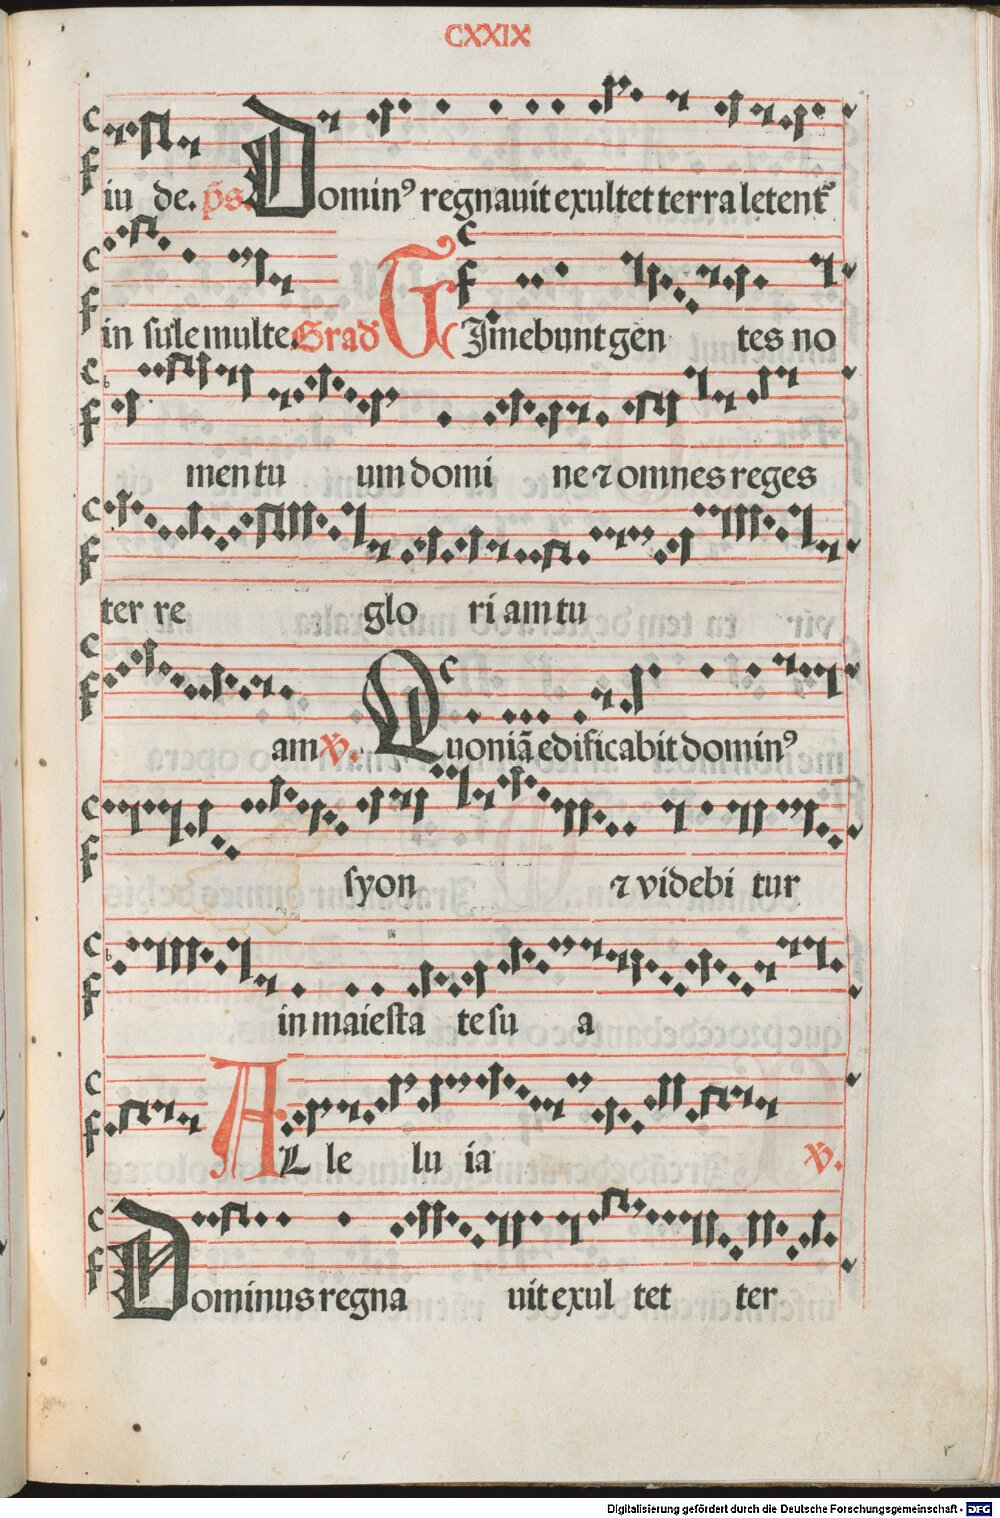 CXXIX
iu de. p̄s. Dominꝰ regnauit exultet terra letent᷑
in sule multe. Grad̄ Timebunt gen tes no
men tu um domi ne ⁊ omnes reges
ter re glo ri am tu
am ℣. Quoniā edificabit dominꝰ
syon ⁊ videbi tur
in maiesta te su a
AL le lu ia ℣.
Dominus regna uit exul tet ter
r
Digitalisierung gefördert durch die Deutsche Forschungsgemeinschaft - DFG